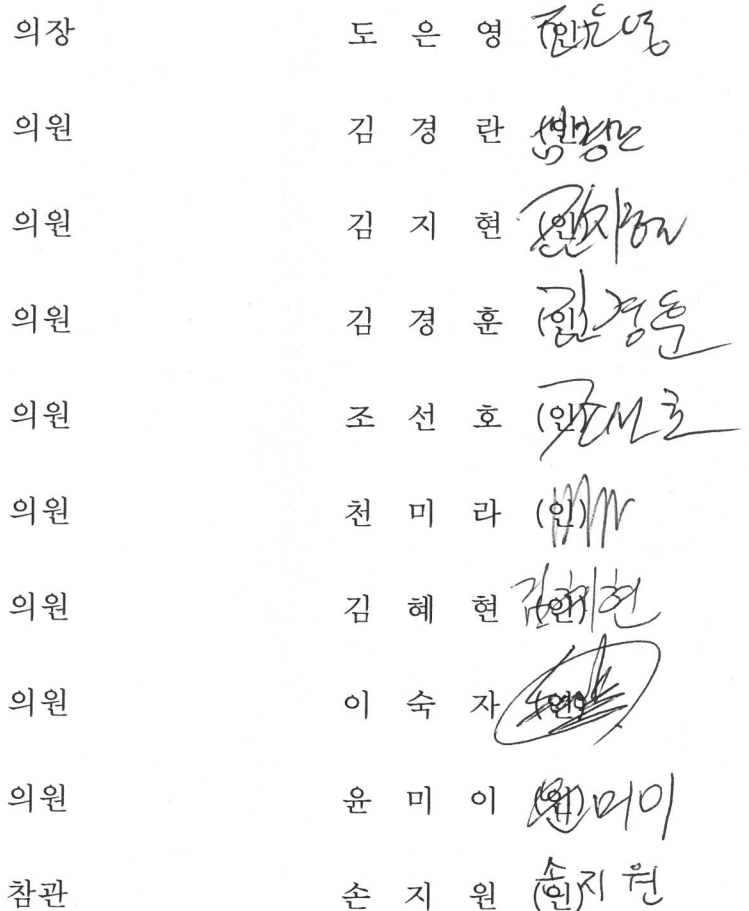 의장 도 은 영 (인)
의원 김 경 란 (인)
의원 김 지 현 (인) 김지현
의원 김 경 훈 (인) 김경훈
의원 조 선 호 (인) 조선호
의원 천 미 라 (인)
의원 김 혜 현 (인) 김혜현
의원 이 숙 자 (인)
의원 윤 미 이 (인) 윤미이
참관 손 지 원 (인) 손지원